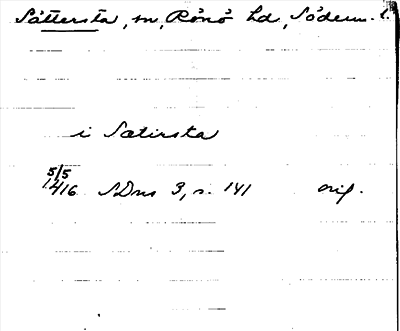 Sättersta, sn, Rönö hd, Söderm. l.
i Sætirsta
5/5
1416 SDns 3, s. 141 orig.